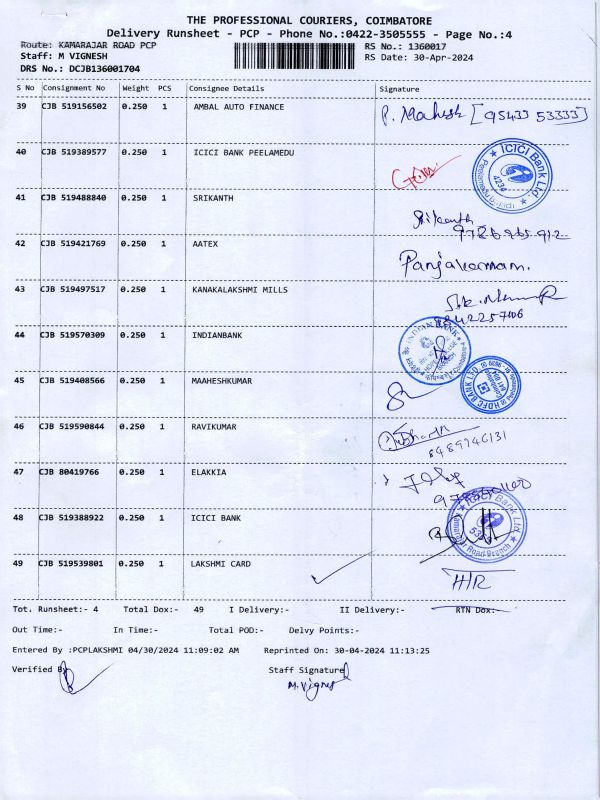 THE PROFESSIONAL COURIERS, COIMBATORE
Delivery Runsheet - PCP - Phone No.:0422-3505555 - Page No.:4
Route: KAMARAJAR ROAD PCP RS No.: 1360017
Staff: M VIGNESH RS Date: 30-Apr-2024
DRS No.: DCJB136001704
S No Consignment No Weight PCS Consignee Details Signature
39 CJB 519156502 0.250 1 AMBAL AUTO FINANCE P. Mahesh [95433 53333]
40 CJB 519389577 0.250 1 ICICI BANK PEELAMEDU ICICI Bank Ltd Peelamedu Branch 4234
41 CJB 519488840 0.250 1 SRIKANTH Srikanth
42 CJB 519421769 0.250 1 AATEX
43 CJB 519497517 0.250 1 KANAKALAKSHMI MILLS
44 CJB 519570309 0.250 1 INDIANBANK INDIAN BANK
45 CJB 519408566 0.250 1 MAAHESHKUMAR HDFC BANK LTD.
46 CJB 519590844 0.250 1 RAVIKUMAR 8489746131
47 CJB 80419766 0.250 1 ELAKKIA
48 CJB 519388922 0.250 1 ICICI BANK ICICI Bank Ltd Kamarajar Road Branch
49 CJB 519539801 0.250 1 LAKSHMI CARD H/R
Tot. Runsheet:- 4 Total Dox:- 49 I Delivery:- II Delivery:- RTN Dox:-
Out Time:- In Time:- Total POD:- Delvy Points:-
Entered By :PCPLAKSHMI 04/30/2024 11:09:02 AM Reprinted On: 30-04-2024 11:13:25
Verified By Staff Signature
M.Vignesh